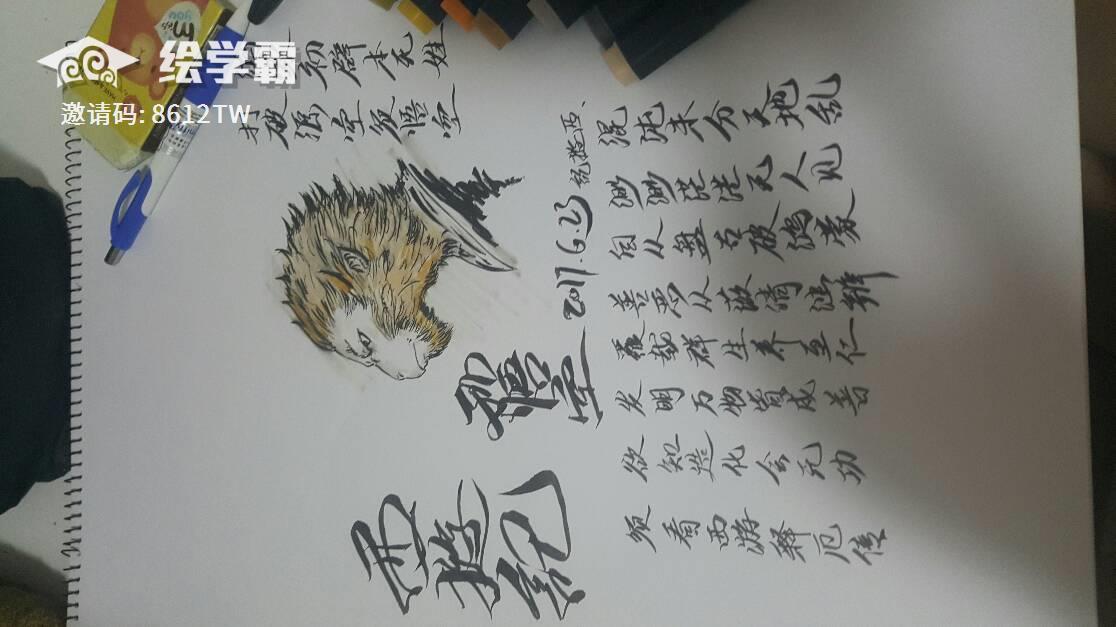 绘学霸
邀请码: 8612TW
初辟本无姓
打破顽空须悟空
混沌未分天地乱
渺渺茫茫无人见
自从盘古破鸿蒙
善恶从兹清浊辨
覆载群生养至仁
发明万物皆成善
欲知造化会元功
须看西游释厄传
2017.6.23
孙悟空
西遊记